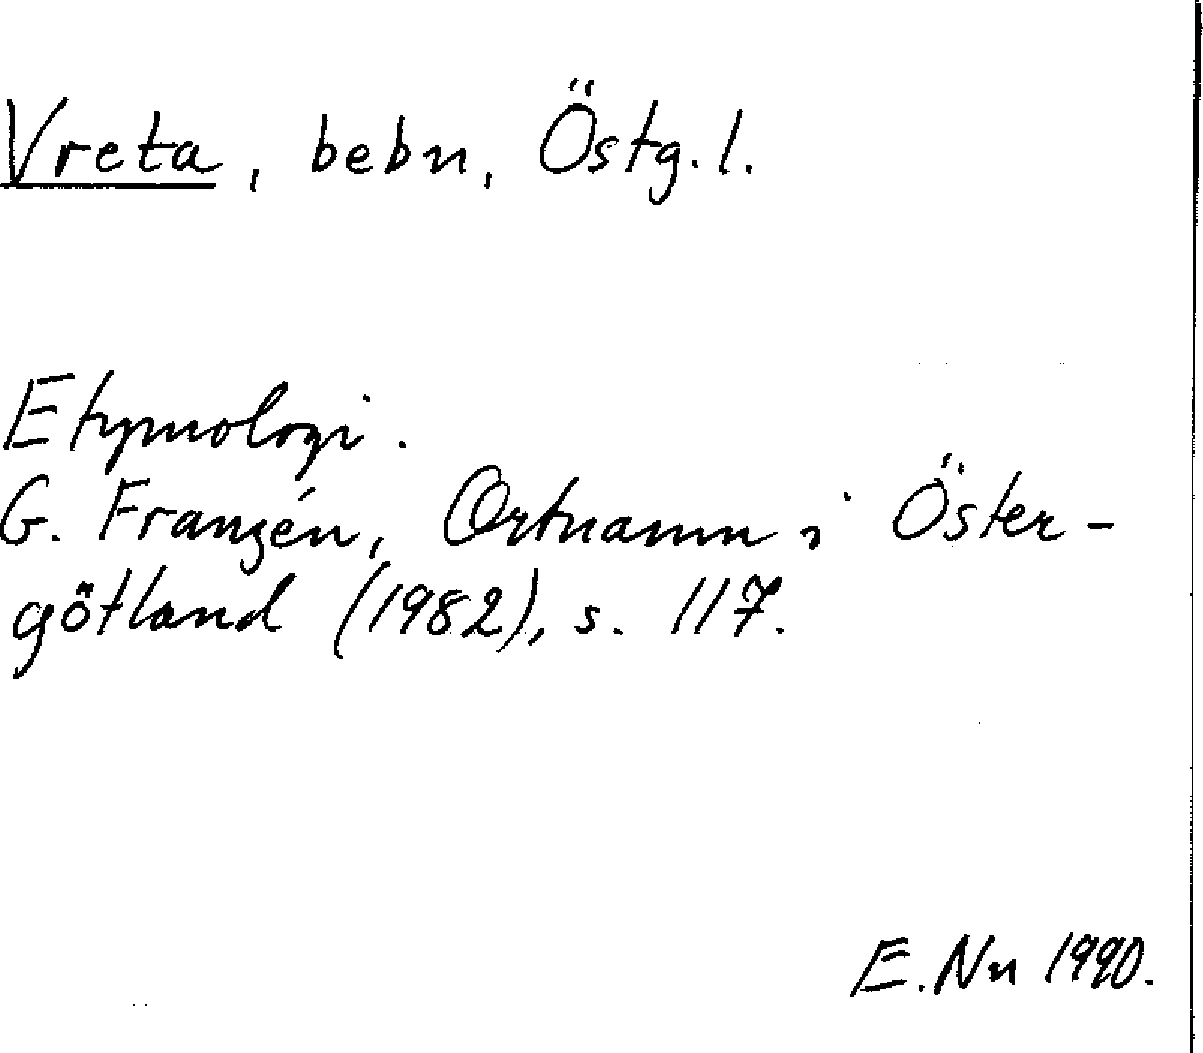 Vreta, bebn, Östg. l.
Etymologi.
G. Franzén, Ortnamn i Öster-
götland (1982), s. 117.
E. Nn 1990.